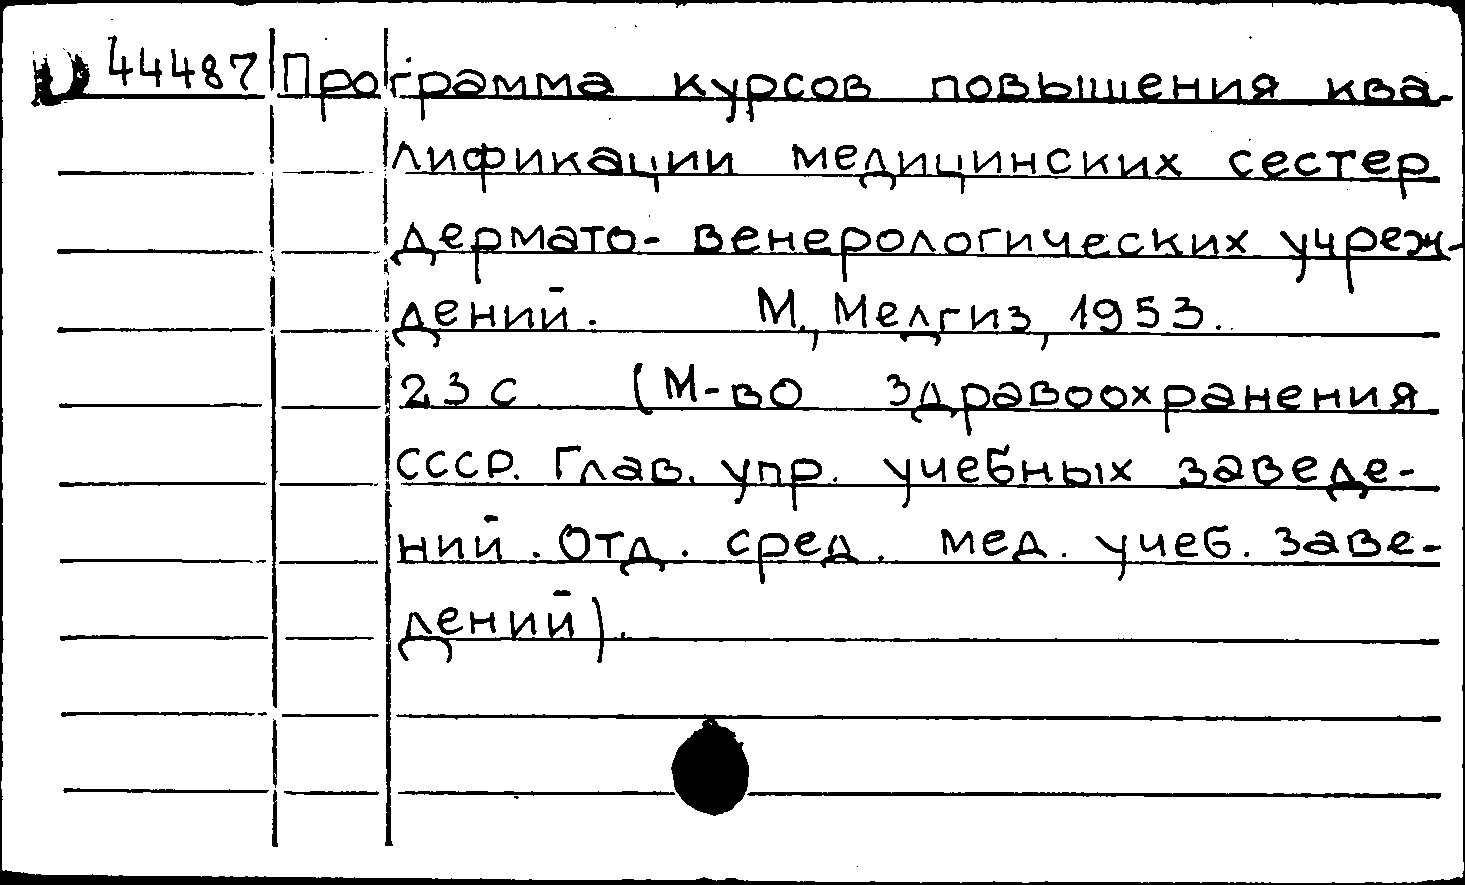 U 44487 Программа курсов повышения ква-
лификации медицинских сестер
дермато-венерологических учреж-
дений. М., Медгиз, 1953.
23 с (М-во здравоохранения
СССР. Глав. упр. учебных заведе-
ний. Отд. сред. мед. учеб. заве-
дений).